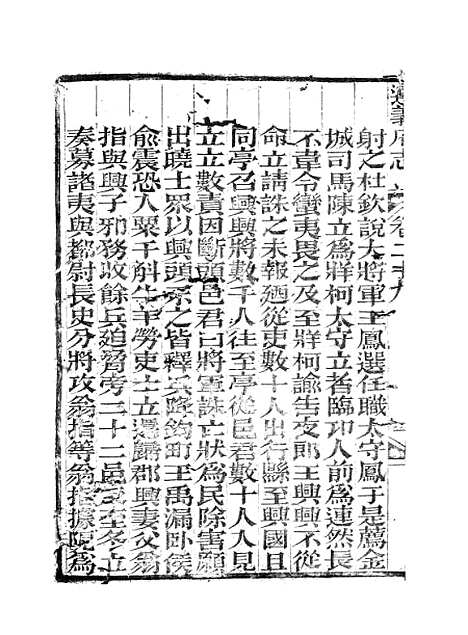 遵義府志 卷二十九
射之杜欽說大將軍王鳳選任職太守鳳于是薦金
城司馬陳立為牂柯太守立者臨邛人前為連然長
不韋令蠻夷畏之及至牂柯諭告夜郎王興興不從
命立請誅之未報迺從吏數十人出行縣至興國且
同亭召興興將數千人往至亭從邑君數十人入見
立立數責因斷頭邑君曰將軍誅亡狀為民除害願
出曉士眾以興頭示之皆釋兵降鉤町王禹漏臥侯
俞震恐入粟千斛牛羊勞吏士立還歸郡興妻父翁
指與興子邪務收餘兵迫脅旁二十二邑反至冬立
奏募諸夷與都尉長史分將攻翁指等翁指據阨為